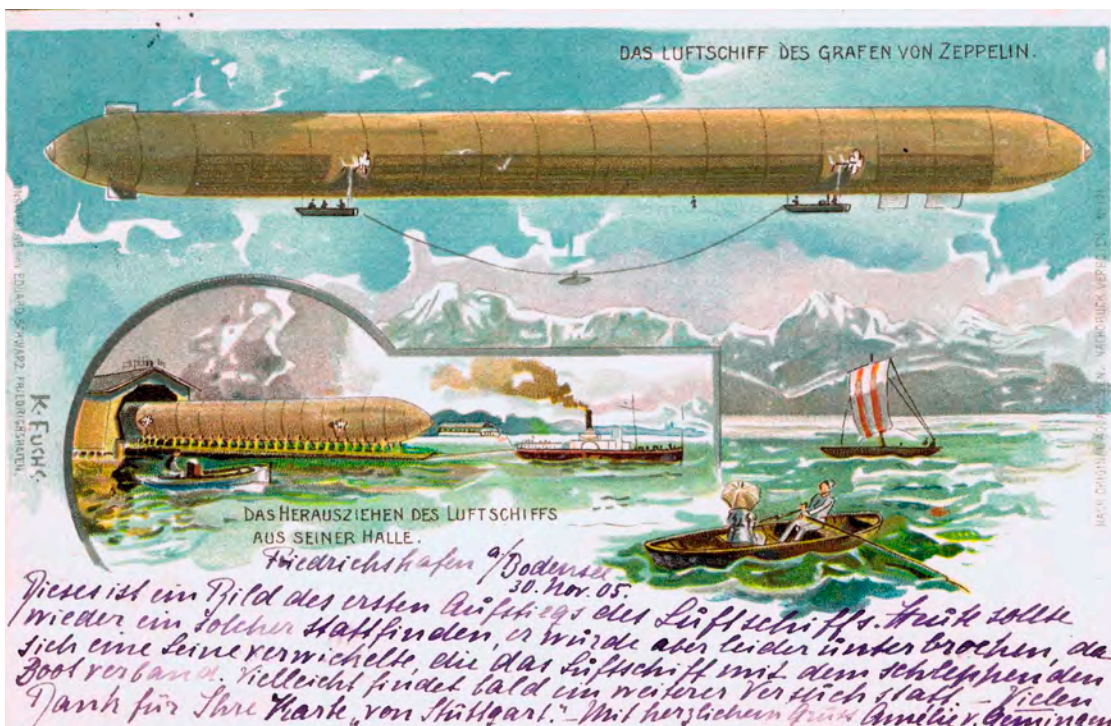 DAS LUFTSCHIFF DES GRAFEN VON ZEPPELIN.
KUNSTVERLAG VON EDUARD SCHWARZ, FRIEDRICHSHAFEN.
K. FUCHS.
NACH ORIGINAL NACHDRUCK VERBOTEN.
DAS HERAUSZIEHEN DES LUFTSCHIFFS
AUS SEINER HALLE.
Friedrichshafen a/Bodensee
30. Nov. 05.
Dieses ist ein Bild des ersten Aufstiegs des Luftschiffs. Heute sollte
wieder ein solcher stattfinden, er wurde aber leider unterbrochen, da
sich eine Leine verwickelte, die das Luftschiff mit dem schleppenden
Boot verband. Vielleicht findet bald ein weiterer Versuch statt – Vielen
Dank für Ihre Karte „von Stuttgart." – Mit herzlichem Gruß Amélie v.